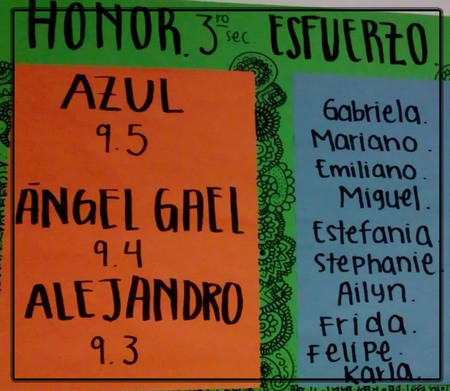 HONOR. 3ro sec. ESFUERZO.
AZUL
9.5
ÁNGEL GAEL
9.4
ALEJANDRO
9.3
Gabriela.
Mariano.
Emiliano.
Miguel.
Estefania.
Stephanie.
Ailyn.
Frida.
Felipe.
Karla.